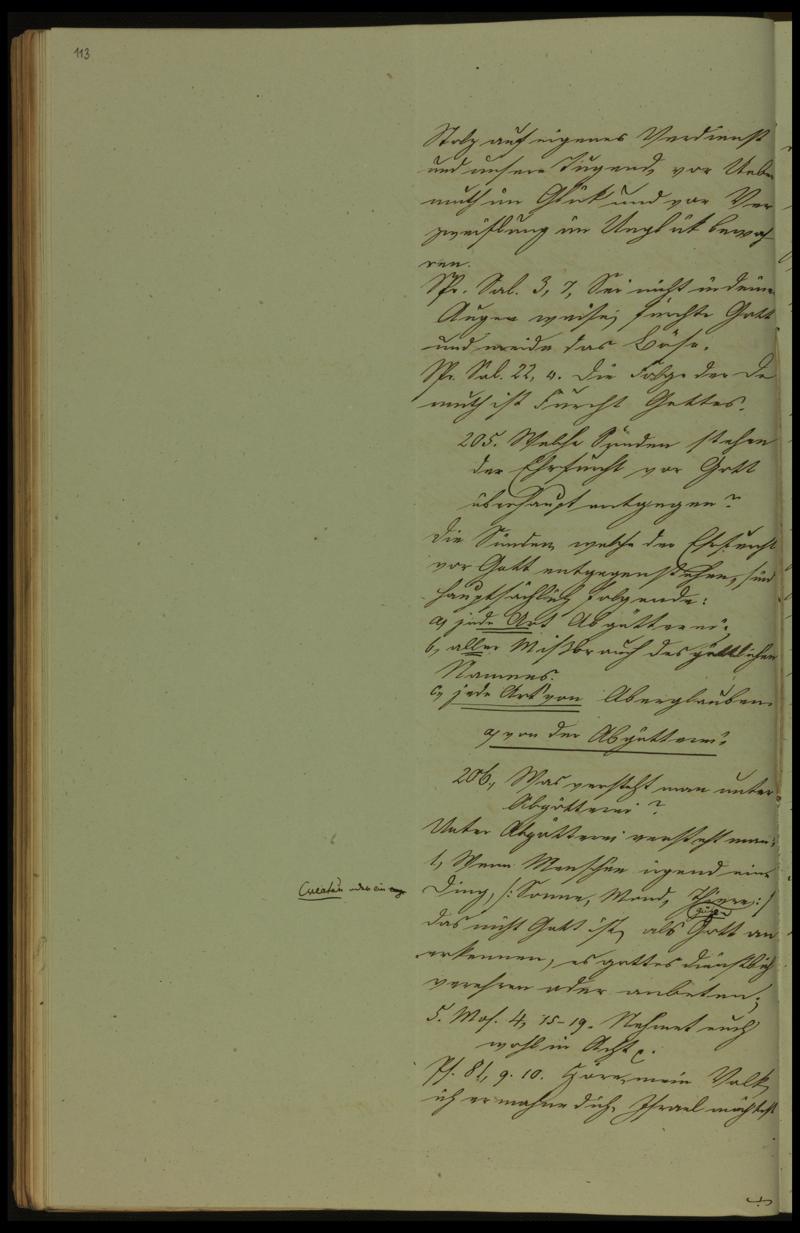 113
Stolz auf eigenes Verdienst
und unsere Tugend, vor Ueber
muth im Glük und vor Ver
zweiflung im Unglük bewah
ren.
Spr. Sal. 3, 7, Sei nicht in deinen
Augen weise; fürchte Gott
und meide das Böse.
Spr. Sal. 22, 4. Die Folge der De
muth ist Furcht Gottes.
205. Welche Sünden stehen
der Ehrfurcht vor Gott
überhaupt entgegen?
Die Sünden, welche der Ehrfurcht
vor Gott entgegenstehen, sind
hauptsächlich folgende:
a, jede Art Abgötterei.
b, aller Mißbrauch des göttlichen
Namens.
c, jede Art von Aberglauben.
a, von der Abgötterei.
206, Was versteht man unter
Abgötterei?
Unter Abgötterei versteht man:
1, Wenn Menschen irgend ein
Creatur oder ein
Ding, /: Sonne, Mond, Thiere :/
das nicht Gott ist, als Gott an
erkennen, es gottesdienstlich
verehren oder anbeten;
5. Mos. 4, 15-19. Nehmet euch
wohl in Acht
Ps. 81, 9. 10. Höre, mein Volk,
ich ermahne dich, Israel möchtest